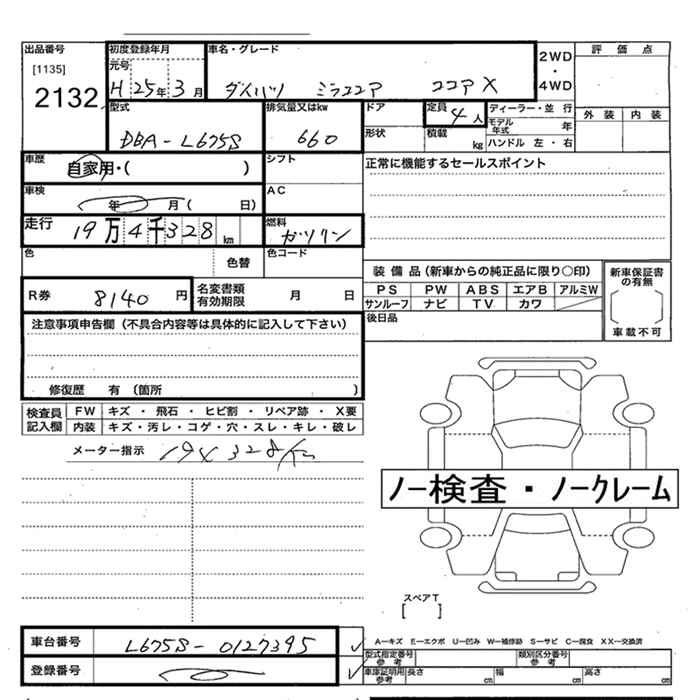 出品番号 初度登録年月 車名・グレード 2WD・4WD 評価点
[1135] 元号
2132 H 25年 3月 ダイハツ ミラココア ココア X
型式 排気量又はkw ドア 定員 4人 ディーラー・並行 外装 内装
DBA-L675S 660 形状 積載 kg モデル年式 年
ハンドル 左・右
車歴 自家用・( ) シフト 正常に機能するセールスポイント
車検 年 月( 日) AC
走行 19万4千328km 燃料 ガソリン
色 色替 色コード
装備品(新車からの純正品に限り○印) 新車保証書の有無
R券 8140円 名変書類有効期限 月 日 PS PW ABS エアB アルミW
サンルーフ ナビ TV カワ
注意事項申告欄(不具合内容等は具体的に記入して下さい) 後日品 車載不可
修復歴 有(箇所 )
検査員記入欄 FW キズ・飛石・ヒビ割・リペア跡・X要
内装 キズ・汚レ・コゲ・穴・スレ・キレ・破レ
メーター指示 194328km
ノー検査・ノークレーム
スペアT
[ ]
車台番号 L675S-0127395 A-キズ E-エクボ U-凹み W-補修跡 S-サビ C-腐食 XX-交換済
型式指定番号参考 類別区分番号参考
登録番号 車庫証明用参考 長さ cm 幅 cm 高さ cm